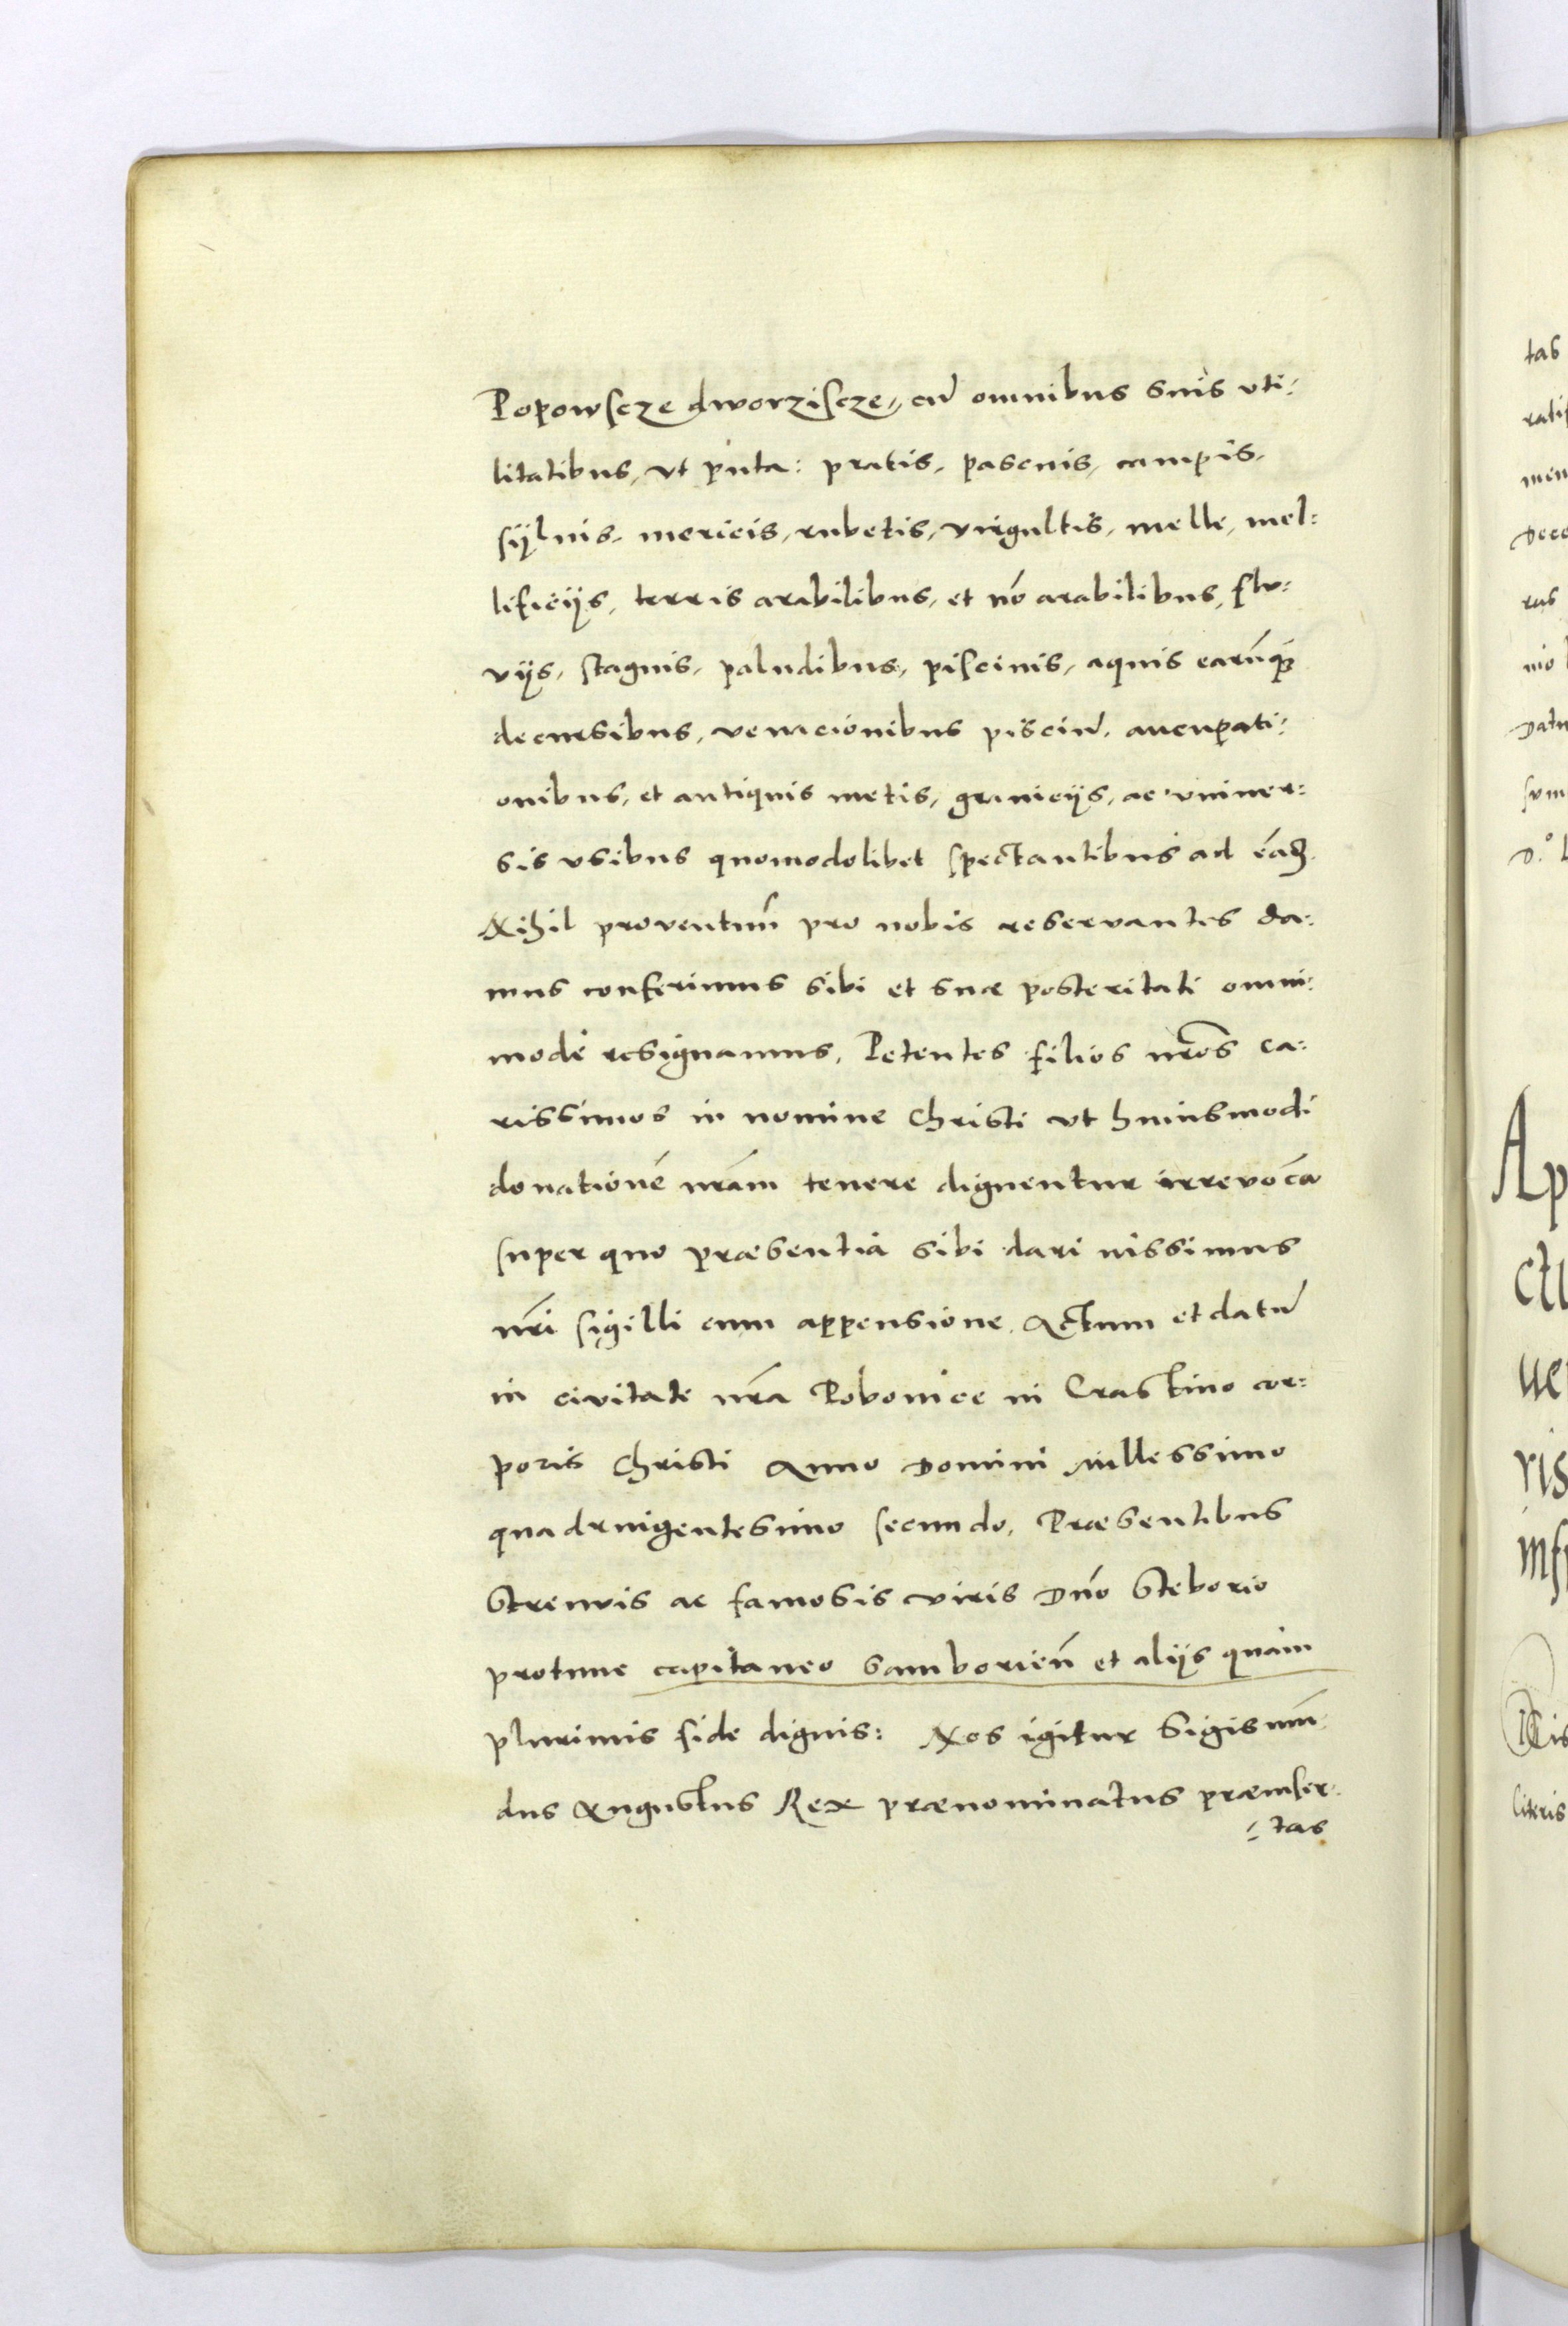 Popowscze dworziscze, cū omnibus suis vti:
litatibus, vt puta: pratis, pascuis, campis,
sÿluis, mericis, rubetis, virgultis, melle, mel:
lificÿs, terris arabilibus, et nō arabilibus, flu:
vÿs, stagnis, paludibus, piscinis, aquis earūq̃
decursibus, venacionibus pisciū, aucupati:
onibus, et antiquis metis, granicÿs, ac vniuer:
sis vsibus quomodolibet spectantibus ad eãꝫ.
Nihil proventuū pro nobis reservantes da:
mus conferimus sibi et suæ posteritati omni:
mode resignamus, Petentes filios nr̃os ca:
rissimos in nomine Christi vt huiusmodi
donationē nr̃am tenere dignentur irrevocã
super quo præsentia sibi dari iussimus
nr̃i sigilli cum appensione. Actum et datū
in civitate nr̃a Bobonice in Crastino cor:
poris Christi Anno Domini Millessimo
quadruigentesimo secundo, Præsentibus
strenuis ac famosis viris Dño Steborio
protunc capitaneo samborieñ et alÿs quam
plurimis fide dignis: Nos igitur Sigismũ
dus Augustus Rex prænominatus præinser:
:tas
tas
rus
Ap
ctu
ris
literis